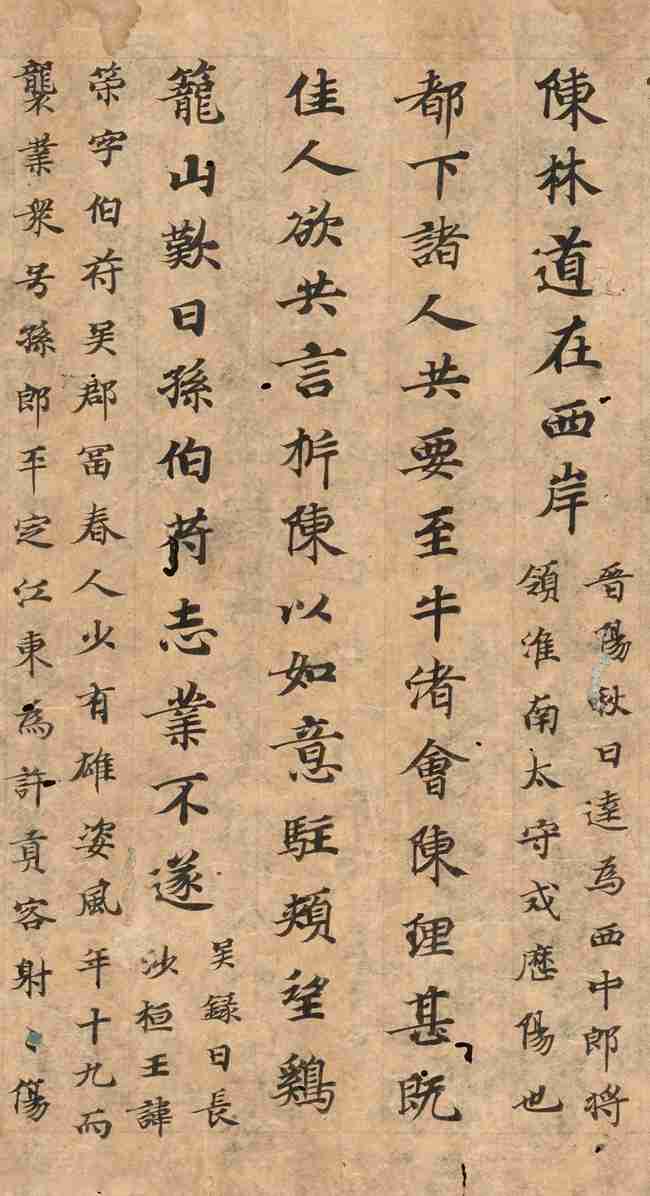 陳林道在西岸
晉陽秋曰逵為西中郎將
領淮南太守戍歷陽也
都下諸人共要至牛渚會陳理甚既
佳人欲共言析陳以如意駐頰望鷄
籠山歎曰孫伯苻志業不遂
吳録曰長
沙桓王諱
策字伯苻吳郡冨春人少有雄姿風年十九而
襲業衆号孫郎平定江東為許貢客射〻傷